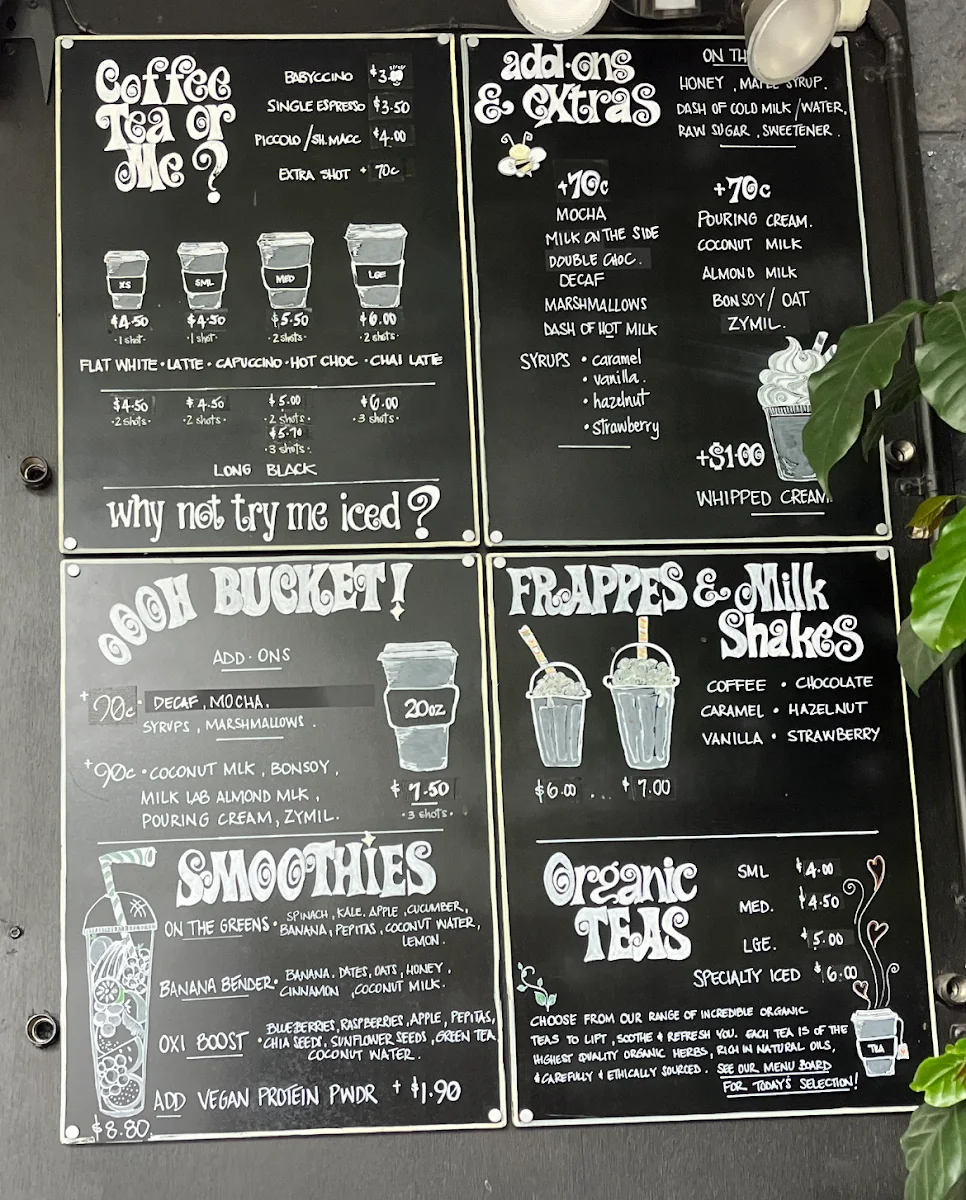 Coffee
Tea or
Me?
BABYCCINO $3.
SINGLE ESPRESSO $3.50
PICCOLO/SH.MACC $4.00
EXTRA SHOT + 70c
XS SML MED LGE
$4.50 $4.50 $5.50 $6.00
·1 shot· ·1 shot· ·2 shots· ·2 shots·
FLAT WHITE · LATTE · CAPUCCINO · HOT CHOC · CHAI LATTE
$4.50 $4.50 $5.00 $6.00
·2 shots· ·2 shots· ·2 shots· ·3 shots·
$5.70
·3 shots·
LONG BLACK
why not try me iced?
add·ons
& extras
ON
HONEY, MAPLE SYRUP.
DASH OF COLD MILK/WATER,
RAW SUGAR, SWEETENER.
+70c
MOCHA
MILK ON THE SIDE
DOUBLE CHOC.
DECAF
MARSHMALLOWS
DASH OF HOT MILK
SYRUPS • caramel
• vanilla.
• hazelnut
• strawberry
+70c
POURING CREAM.
COCONUT MILK
ALMOND MILK
BONSOY/ OAT
ZYMIL.
+$1.00
WHIPPED CREAM.
OOOH BUCKET!
ADD-ONS
+90c DECAF, MOCHA.
SYRUPS, MARSHMALLOWS.
+90c • COCONUT MLK, BONSOY,
MILK LAB ALMOND MLK,
POURING CREAM, ZYMIL.
20oz
$7.50
·3 shots·
SMOOTHIES
ON THE GREENS • SPINACH, KALE, APPLE, CUCUMBER,
BANANA, PEPITAS, COCONUT WATER,
LEMON.
BANANA BENDER • BANANA, DATES, OATS, HONEY,
CINNAMON, COCONUT MILK.
OXI BOOST • BLUEBERRIES, RASPBERRIES, APPLE, PEPITAS,
CHIA SEEDS, SUNFLOWER SEEDS, GREEN TEA,
COCONUT WATER.
ADD VEGAN PROTEIN PWDR + $1.90
$8.80
FRAPPES & Milk
Shakes
COFFEE • CHOCOLATE
CARAMEL • HAZELNUT
VANILLA • STRAWBERRY
$6.00 ... $7.00
Organic
TEAS
SML $4.00
MED. $4.50
LGE. $5.00
SPECIALTY ICED $6.00
CHOOSE FROM OUR RANGE OF INCREDIBLE ORGANIC
TEAS TO LIFT, SOOTHE & REFRESH YOU. EACH TEA IS OF THE
HIGHEST QUALITY ORGANIC HERBS, RICH IN NATURAL OILS,
& CAREFULLY & ETHICALLY SOURCED. SEE OUR MENU BOARD
FOR TODAY'S SELECTION!
TEA